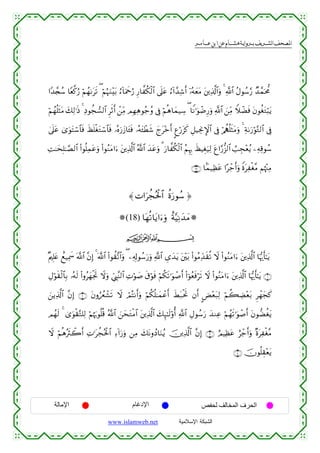 المصحف الشريف برواية هشام عن ابن عامر
مُّحَمَّدٌ رَّسُولُ اللَّهِ ۚ وَالَّذِينَ مَعَهُ أَشِدَّاءُ عَلَى الْكُفَّارِ رُحَمَاءُ بَيْنَهُمْ ۖ تَرَاهُمْ رُكَّعًا سُجَّدًا
يَبْتَغُونَ فَضْلًا مِّنَ اللَّهِ وَرِضْوَانًا ۖ سِيمَاهُمْ فِي وُجُوهِهِم مِّنْ أَثَرِ السُّجُودِ ۚ ذَٰلِكَ مَثَلُهُمْ
فِي التَّوْرَاةِ ۚ وَمَثَلُهُمْ فِي الْإِنجِيلِ كَزَرْعٍ أَخْرَجَ شَطْأَهُ فَآزَرَهُ فَاسْتَغْلَظَ فَاسْتَوَىٰ عَلَىٰ
سُوقِهِ يُعْجِبُ الزُّرَّاعَ لِيَغِيظَ بِهِمُ الْكُفَّارَ ۗ وَعَدَ اللَّهُ الَّذِينَ آمَنُوا وَعَمِلُوا الصَّالِحَاتِ
مِنْهُم مَّغْفِرَةً وَأَجْرًا عَظِيمًا
﴿ سُورَةُ الْحُجُرَاتِ ﴾
* مَدَنِيَّةٌ وَآيَاتُهَا (18) *
بِسْمِ اللَّهِ الرَّحْمَٰنِ الرَّحِيمِ
يَا أَيُّهَا الَّذِينَ آمَنُوا لَا تُقَدِّمُوا بَيْنَ يَدَيِ اللَّهِ وَرَسُولِهِ ۖ وَاتَّقُوا اللَّهَ ۚ إِنَّ اللَّهَ سَمِيعٌ عَلِيمٌ
يَا أَيُّهَا الَّذِينَ آمَنُوا لَا تَرْفَعُوا أَصْوَاتَكُمْ فَوْقَ صَوْتِ النَّبِيِّ وَلَا تَجْهَرُوا لَهُ بِالْقَوْلِ
كَجَهْرِ بَعْضِكُمْ لِبَعْضٍ أَن تَحْبَطَ أَعْمَالُكُمْ وَأَنتُمْ لَا تَشْعُرُونَ إِنَّ الَّذِينَ
يَغُضُّونَ أَصْوَاتَهُمْ عِندَ رَسُولِ اللَّهِ أُولَٰئِكَ الَّذِينَ امْتَحَنَ اللَّهُ قُلُوبَهُمْ لِلتَّقْوَىٰ ۚ لَهُم
مَّغْفِرَةٌ وَأَجْرٌ عَظِيمٌ إِنَّ الَّذِينَ يُنَادُونَكَ مِن وَرَاءِ الْحُجُرَاتِ أَكْثَرُهُمْ لَا
يَعْقِلُونَ
الحرف المخالف لحفص الإدغام الإمالة
الشبكة الإسلامية www.islamweb.net